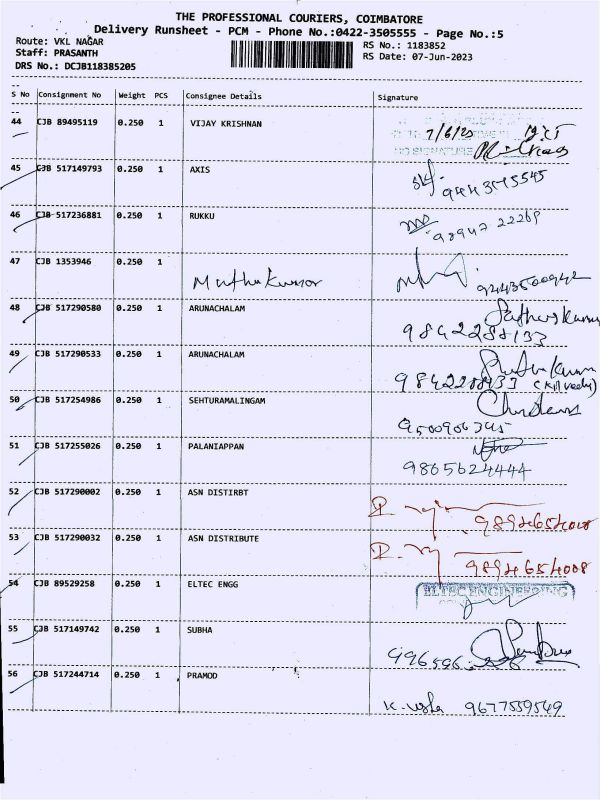 THE PROFESSIONAL COURIERS, COIMBATORE
Delivery Runsheet - PCM - Phone No.:0422-3505555 - Page No.:5
Route: VKL NAGAR
RS No.: 1183852
Staff: PRASANTH
RS Date: 07-Jun-2023
DRS No.: DCJB118385205
S No Consignment No Weight PCS Consignee Details Signature
44 CJB 89495119 0.250 1 VIJAY KRISHNAN 7/6/23
45 CJB 517149793 0.250 1 AXIS
46 CJB 517236881 0.250 1 RUKKU 98947 22269
47 CJB 1353946 0.250 1 Muthukumar 9443500942
48 CJB 517290580 0.250 1 ARUNACHALAM
9842288133
49 CJB 517290533 0.250 1 ARUNACHALAM
50 CJB 517254986 0.250 1 SEHTURAMALINGAM
9500906345
51 CJB 517255026 0.250 1 PALANIAPPAN
9865624444
52 CJB 517290002 0.250 1 ASN DISTIRBT
9894654008
53 CJB 517290032 0.250 1 ASN DISTRIBUTE
9894654008
54 CJB 89529258 0.250 1 ELTEC ENGG ELTEC ENGINEERING
55 CJB 517149742 0.250 1 SUBHA
56 CJB 517244714 0.250 1 PRAMOD
K. Usha 9677559549